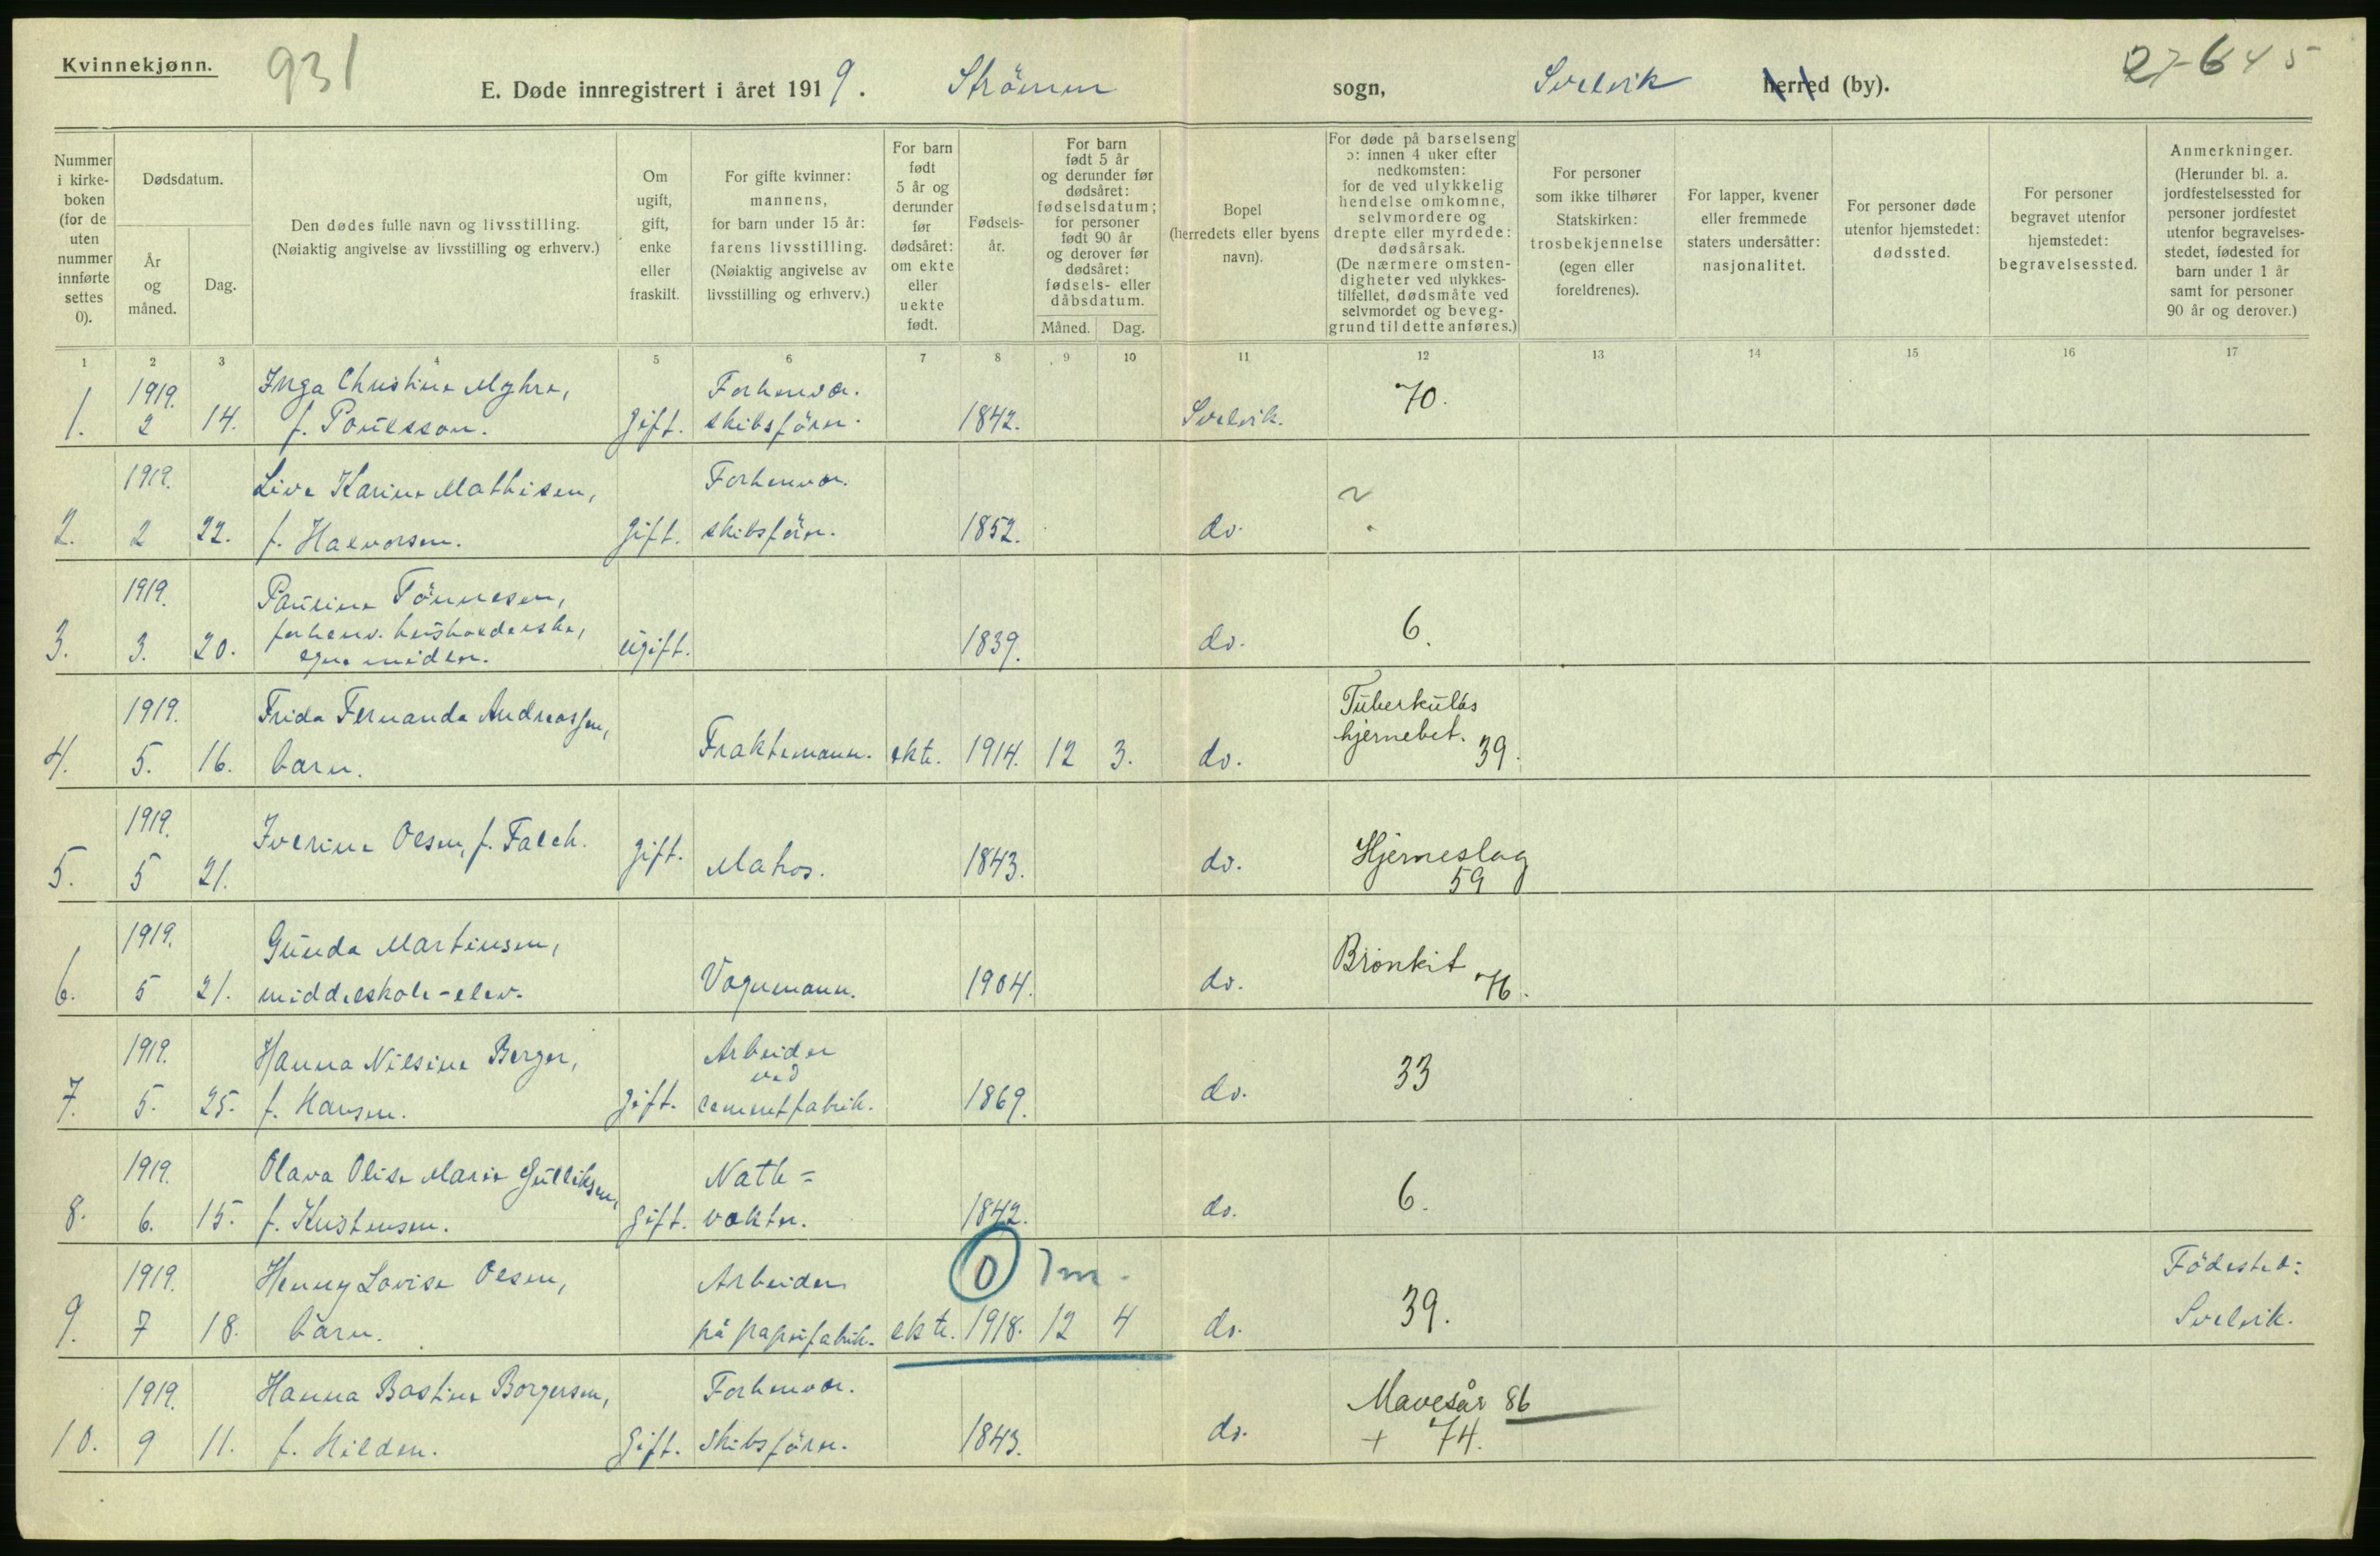 Kvinnekjønn.
931
E. Døde innregistrert i året 1919. Strömm sogn, Svelvik herred (by).
27645
Nummer i kirke-boken (for de uten nummer innførte settes 0).
Dødsdatum.
År og måned.
Dag.
Den dødes fulle navn og livsstilling.
(Nøiaktig angivelse av livsstilling og erhverv.)
Om ugift, gift, enke eller fraskilt.
For gifte kvinner: mannens, for barn under 15 år: farens livsstilling. (Nøiaktig angivelse av livsstilling og erhverv.)
For barn født 5 år og derunder før dødsåret: om ekte eller uekte født.
Fødsels-år.
For barn født 5 år og derunder før dødsåret: fødselsdatum; for personer født 90 år og derover før dødsåret: fødsels- eller dåbsdatum.
Måned. Dag.
Bopel (herredets eller byens navn).
For døde på barselseng ɔ: innen 4 uker efter nedkomsten: for de ved ulykkelig hendelse omkomne, selvmordere og drepte eller myrdede: dødsårsak. (De nærmere omsten-digheter ved ulykkes-tilfellet, dødsmåte ved selvmordet og beveg-grund til dette anføres.)
For personer som ikke tilhører Statskirken: trosbekjennelse (egen eller foreldrenes).
For lapper, kvener eller fremmede staters undersåtter: nasjonalitet.
For personer døde utenfor hjemstedet: dødssted.
For personer begravet utenfor hjemstedet: begravelsessted.
Anmerkninger. (Herunder bl. a. jordfestelsessted for personer jordfestet utenfor begravelses-stedet, fødested for barn under 1 år samt for personer 90 år og derover.)
1 2 3 4 5 6 7 8 9 10 11 12 13 14 15 16 17
1919. Inga Christine Myhre, Forhenvær. 70.
1. 2 14. f. Poulsson. gift. skibsförer. 1842. Svelvik.
1919. Live Karine Mathisen, Forhenvær.
2. 2 22. f. Halvorsen. gift. skibsförer. 1852. do.
1919. Pauline Tönnesen,
forhenv. husholderske, 6.
3. 3. 20. egne midler. ugift. 1839. do.
1919. Frida Fernanda Andreassen, Tuberkuløs
hjernebet. 39.
4. 5. 16. barn. Fraktemann. ekte. 1914. 12 3. do.
1919. Iverine Olsen, f. Falch. gift. Hjerneslag
5. 5 21. Matros. 1843. do. 59
1919. Gunda Martinsen, Bronkit
6. 5 21. middelskole-elev. Vognmann. 1904. do. 76.
1919. Hanna Nilsine Berger, Arbeider 33
ved
7. 5. 25. f. Hansen. gift. cementfabrik. 1869. do.
1919. Olava Olise Marie Gulliksen, Natt= 6.
8. 6. 15. f. Kristensen. gift. vakter. 1842. do.
1919. Henny Lovise Olsen, Arbeider 0 7m. 39. Födested:
9. 7 18. barn. på papirfabrik. ekte. 1918. 12 4 do. Svelvik.
1919. Hanna Bastine Borgersen, Forhenvær. Mavesår 86
10. 9 11. f. Hilden. gift. skibsförer. 1843. do. + 74.